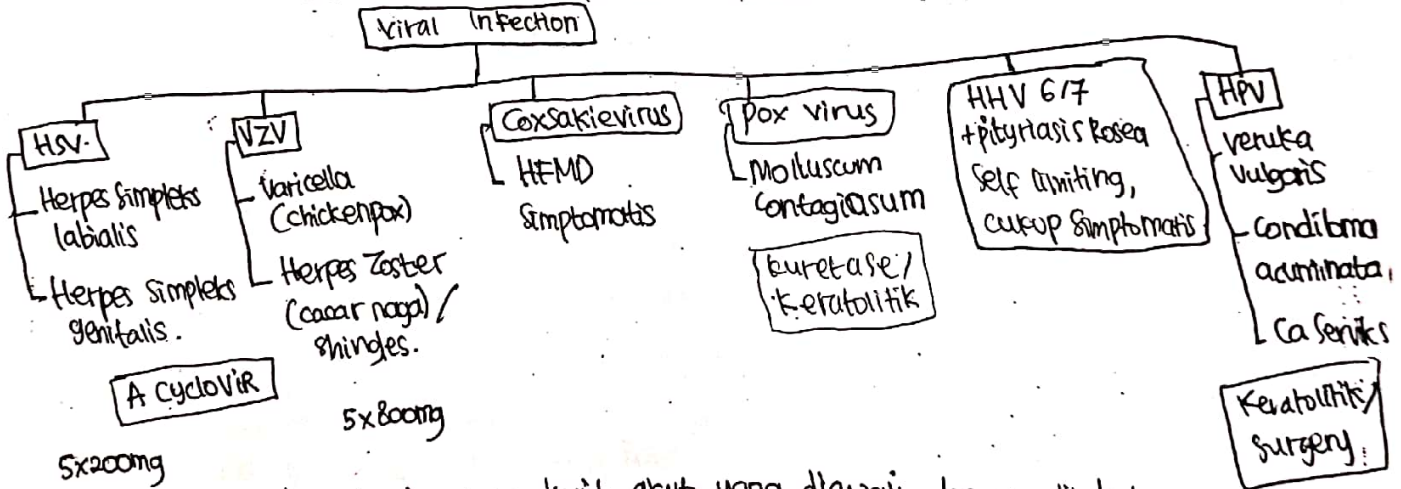 Viral Infection
HSV.
Herpes Simpleks
labialis
Herpes Simpleks
genitalis.
VZV
Varicella
(chickenpox)
Herpes Zoster
(cacar naga) /
shingles.
A CYCLOVIR
5x200mg
5x800mg
Coxsakievirus
HFMD
Simptomatis
Pox virus
Molluscum
Contagiasum
kuretase/
Keratolitik
HHV 6/7
+pityriasis Rosea
Self limiting,
cukup simptomatis
HPV
veruka
vulgaris
Condiloma
acuminata,
Ca Serviks
Keratolitik/
surgery.
akut yang